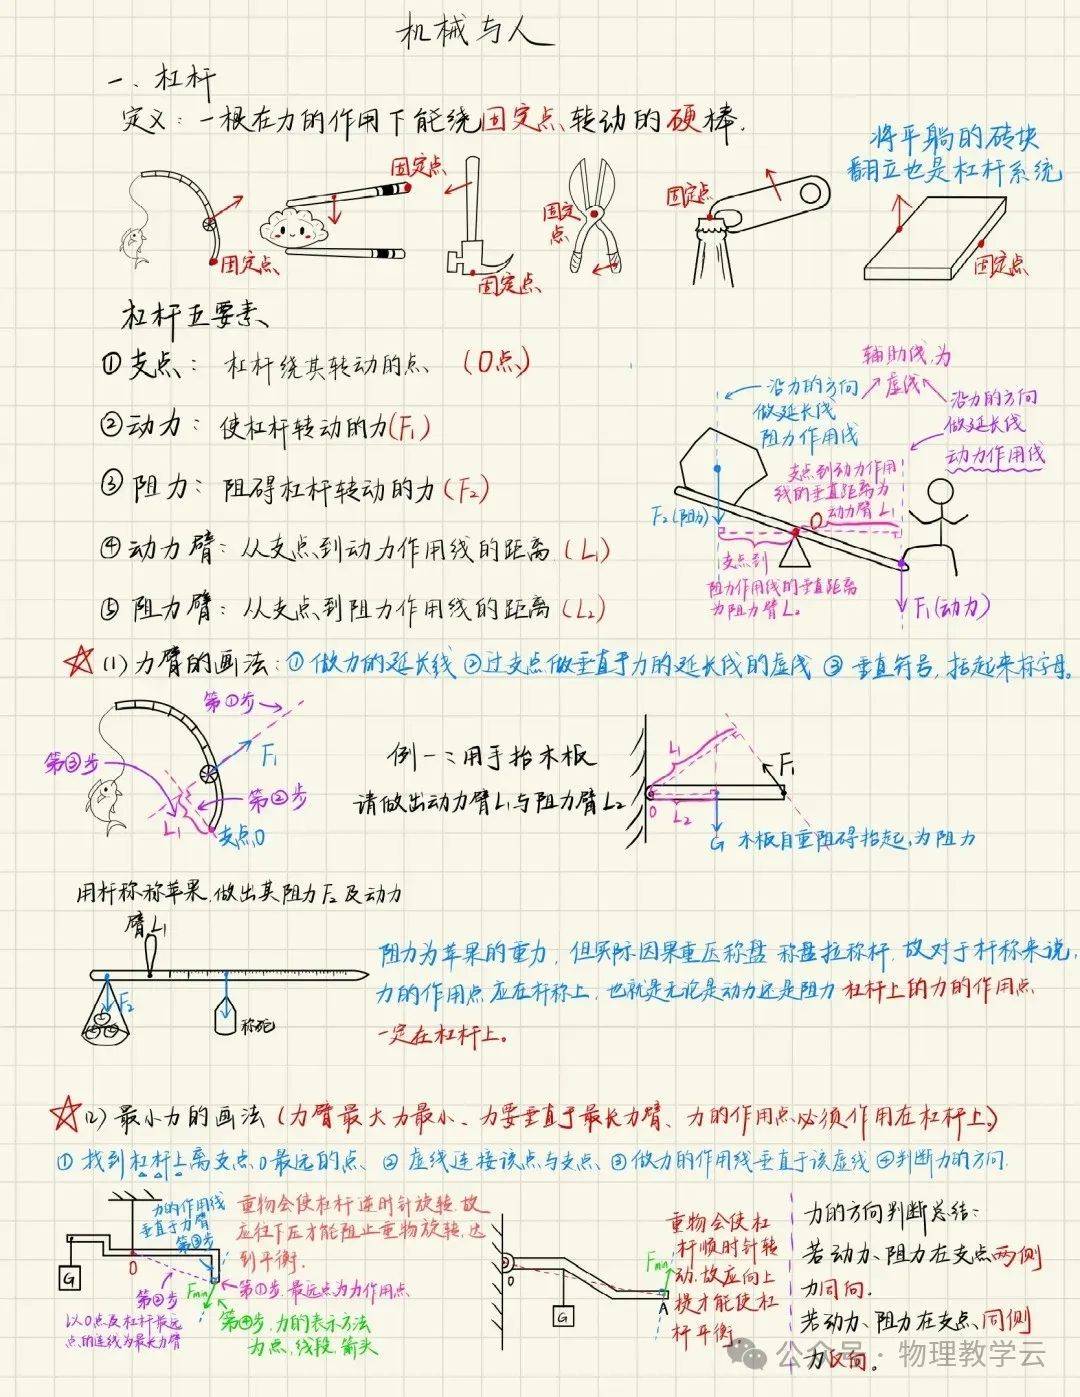 机械与人
一、杠杆
定义：一根在力的作用下能绕固定点转动的硬棒.
将平躺的砖块
翻立也是杠杆系统
固定点
固定点
固定点
固定
点
固定点
固定点
杠杆五要素、
①支点：杠杆绕其转动的点、（O点）
②动力：使杠杆转动的力(F₁)
③阻力：阻碍杠杆转动的力(F₂)
④动力臂：从支点到动力作用线的距离(L₁)
⑤阻力臂：从支点到阻力作用线的距离(L₂)
辅助线、为
虚线
沿力的方向
做延长线
阻力作用线
沿力的方向
做延长线
动力作用线
支点到动力作用
线的垂直距离为
动力臂L₁
F₂(阻力)
O
支点到
阻力作用线的垂直距离
为阻力臂L₂
F₁(动力)
☆(1)力臂的画法：①做力的延长线 ②过支点做垂直于力的延长线的虚线 ③垂直符号，括起来标字母。
第①步
F₁
第③步
第②步
L₁
支点O
例一：用手抬木板
请做出动力臂L₁与阻力臂L₂
L₁
F₁
O
L₂
G 木板自重阻碍抬起，为阻力
用杆称称苹果，做出其阻力F₂及动力
臂L₁
F₂
称砣
阻力为苹果的重力，但实际因果重压称盘 称盘拉称杆，故对于杆称来说，
力的作用点应在杆称上，也就是无论是动力还是阻力 杠杆上的力的作用点
一定在杠杆上。
☆(2)最小力的画法（力臂最大力最小、力要垂直于最长力臂、力的作用点必须作用在杠杆上）
①找到杠杆上离支点O最远的点、②虚线连接该点与支点、③做力的作用线垂直于该虚线 ④判断力的方向.
力的作用线
垂直于力臂
第③步
重物会使杠杆逆时针旋转，故
应往下压才能阻止重物旋转，达
到平衡.
G
O
第②步
以O点及杠杆最远
点的连线为最长力臂
Fmin
第①步，最远点为力作用点
第④步，力的表示方法
为点，线段，箭头
O
G
Fmin
A
重物会使杠
杆顺时针转
动，故应向上
提才能使杠
杆平衡
力的方向判断总结：
若动力、阻力在支点两侧
力同向.
若动力、阻力在支点同侧
力反向。
公众号 · 物理教学云